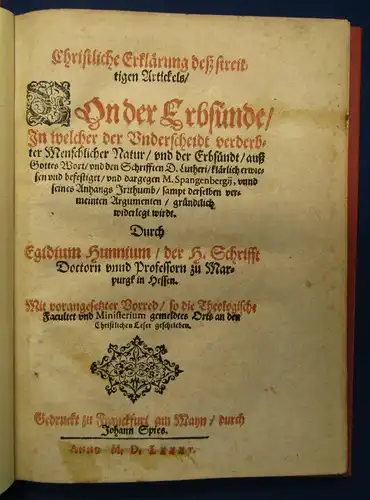 Christliche Erklärung deß streit-
tigen Artickels/
Von der Erbsünde/
In welcher der Vnderscheidt verderb-
ter Menschlicher Natur/ vnd der Erbsündt/ auß
Gottes Wort/ vnd den Schrifften D. Lutheri/ klärlich erwie-
sen vnd befestiget/ vnd dargegen M. Spangenbergij, vnnd
seines Anhangs Irrthumb/ sampt derselben ver-
meinten Argumenten/ gründtlich
widerlegt wirdt.
Durch
Egidium Hunnium/ der H. Schrifft
Doctorn vnnd Professorn zu Mar-
purgk in Hessen.
Mit vorangesetzter Vorred/ so die Theologische
Facultet vnd Ministerium gemeldtes Orts an den
Christlichen Leser geschrieben.
Gedruckt zu Franckfurt am Mayn/ durch
Johann Spies.
Anno M. D. LXXXV.